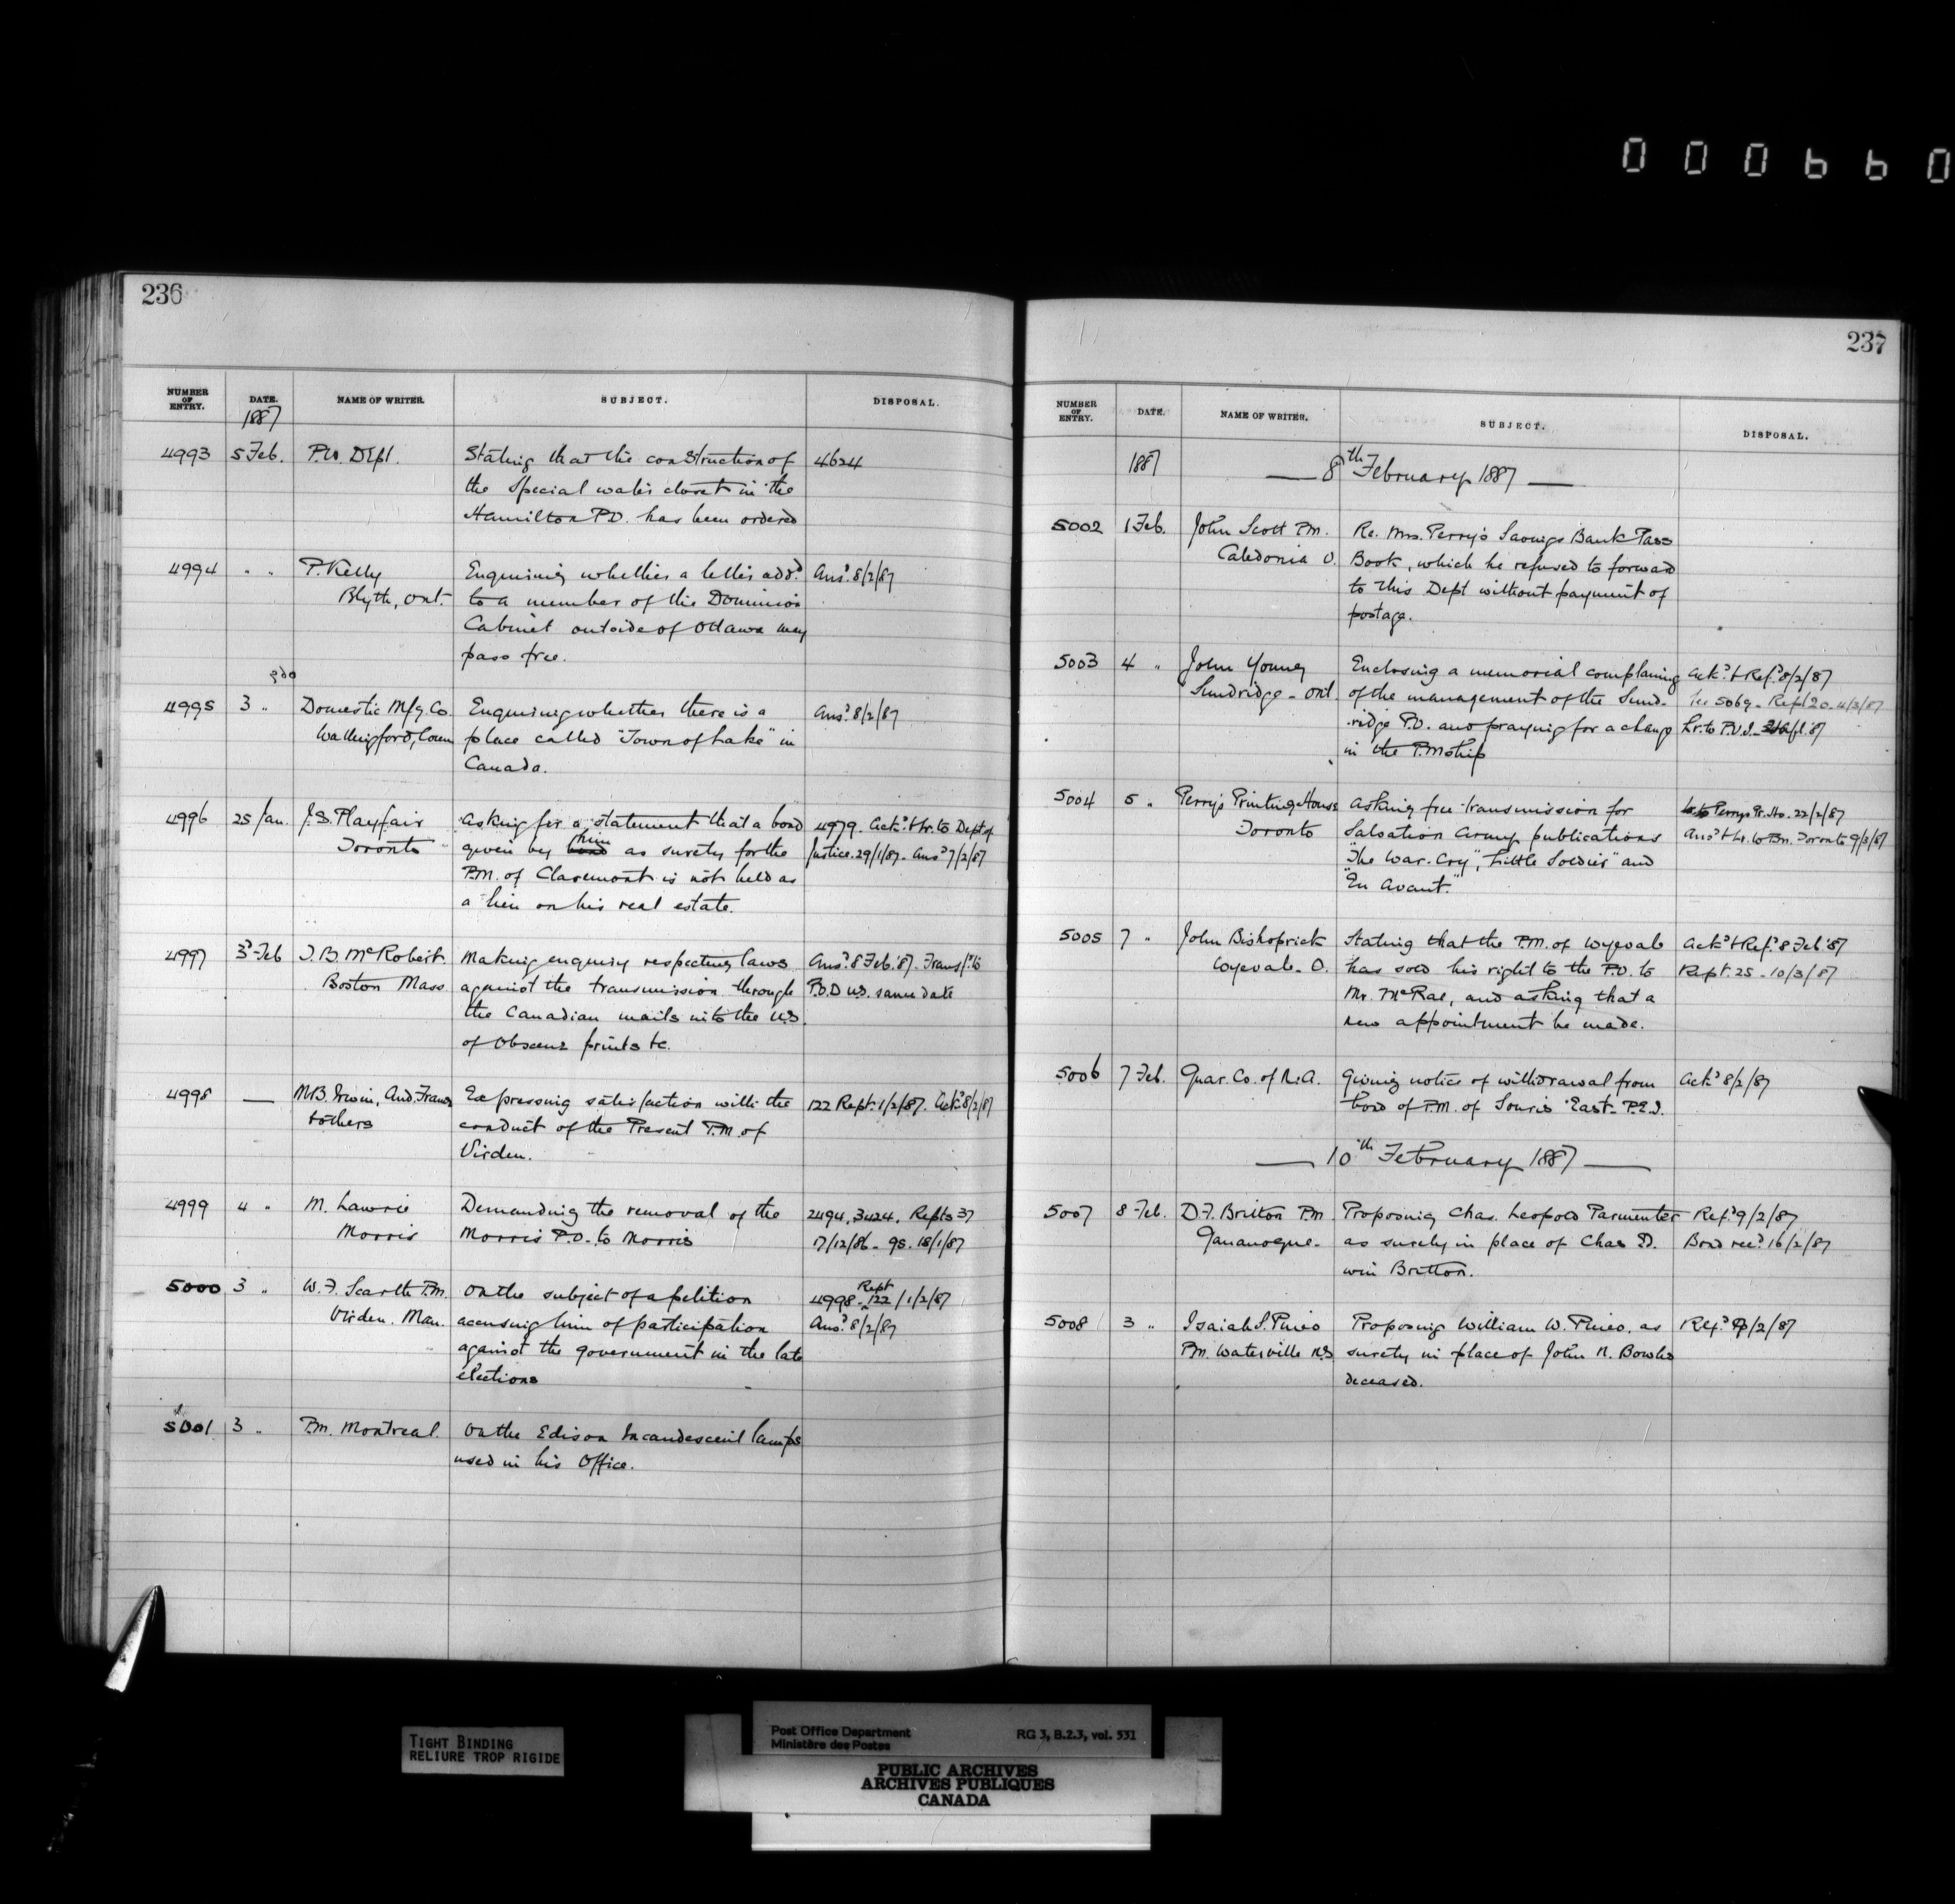 000660
236
NUMBER OF ENTRY. DATE. NAME OF WRITER. SUBJECT. DISPOSAL.
1887
4993 5 Feb. P.W. Dept. Stating that the construction of 4624
the Special water closet in the
Hamilton P.O. has been ordered
4994 " " P. Kelly Enquiring whether a letter addd. Ansd. 8/2/87
Blyth, Ont. to a member of the Dominion
Cabinet outside of Ottawa may
pass free.
4995 3 " Domestic Mfg. Co. Enquiring whether there is a Ansd. 8/2/87
Wallingford, Conn place called "Town of Lake" in
Canada.
4996 25 Jan. J.S. Playfair Asking for a statement that a bond 4979. Ackd. & Lr. to Dept of
Toronto given by him as surety for the Justice. 29/1/87. Ansd 7/2/87
P.M. of Claremont is not held as
a lien on his real estate.
4997 3d Feb J.B. McRobert. Making enquiry respecting laws Ansd. 8 Feb. '87. Transfd. to
Boston Mass against the transmission through P.O.D. U.S. same date
the Canadian mails into the U.S.
of Obscene prints &c.
4998 — M.B. Irwin, And. Fraser Expressing satisfaction with the 122 Rept. 1/2/87. Ackd. 8/2/87
& others conduct of the Present P.M. of
Virden.
4999 4 " M. Lawrie Demanding the removal of the 2494, 3424. Repts 37
Morris Morris P.O. to Morris 17/12/86 - 95. 18/1/87
5000 3 " W.F. Scarth P.M. On the subject of a petition 4998 - Rept 122 / 1/2/87
Virden. Man. accusing him of participation Ansd. 8/2/87
against the government in the late
elections
5001 3 " P.M. Montreal. On the Edison Incandescent lamps
used in his Office.
237
NUMBER OF ENTRY. DATE. NAME OF WRITER. SUBJECT. DISPOSAL.
1887 — 8th February 1887 —
5002 1 Feb. John Scott P.M. Re. Mrs. Perry's Savings Bank Pass
Caledonia O. Book, which he refused to forward
to this Dept without payment of
postage.
5003 4 " John Young Enclosing a memorial complaining Ackd. & Refd. 8/2/87
Sundridge - Ont of the management of the Sund- See 5069 - Rept 20 - 4/3/87
ridge P.O. and praying for a change Lr. to P.O.I.
in the P.Mship
5004 5 " Perry's Printing House Asking free transmission for Lr. to Perrys Pr. Ho. 22/2/87
Toronto Salvation Army publications Ansd & Lr. to P.M. Toronto 9/3/87
"The War-Cry", "Little Soldier" and
"En Avant."
5005 7 " John Bishoprick Stating that the P.M. of Wyevale Ackd & Refd. 8 Feb '87
Wyevale - O. has sold his right to the P.O. to Rept. 25 - 10/3/87
Mr. McRae, and asking that a
new appointment be made.
5006 7 Feb. Guar. Co. of N.A. Giving notice of withdrawal from Ackd 8/2/87
bond of P.M. of Souris East - P.E.I.
— 10th February 1887 —
5007 8 Feb. D.F. Britton P.M. Proposing Chas. Leopold Parmenter Refd 9/2/87
Gananoque - as surety in place of Chas D. Bond recd. 16/2/87
win Britton.
5008 3 " Isaiah S. Pineo Proposing William W. Pineo, as Refd. 9/2/87
P.M. Waterville N.S surety in place of John N. Bowles
deceased.
TIGHT BINDING
RELIURE TROP RIGIDE
Post Office Department RG 3, B.2.3, vol. 531
Ministère des Postes
PUBLIC ARCHIVES
ARCHIVES PUBLIQUES
CANADA